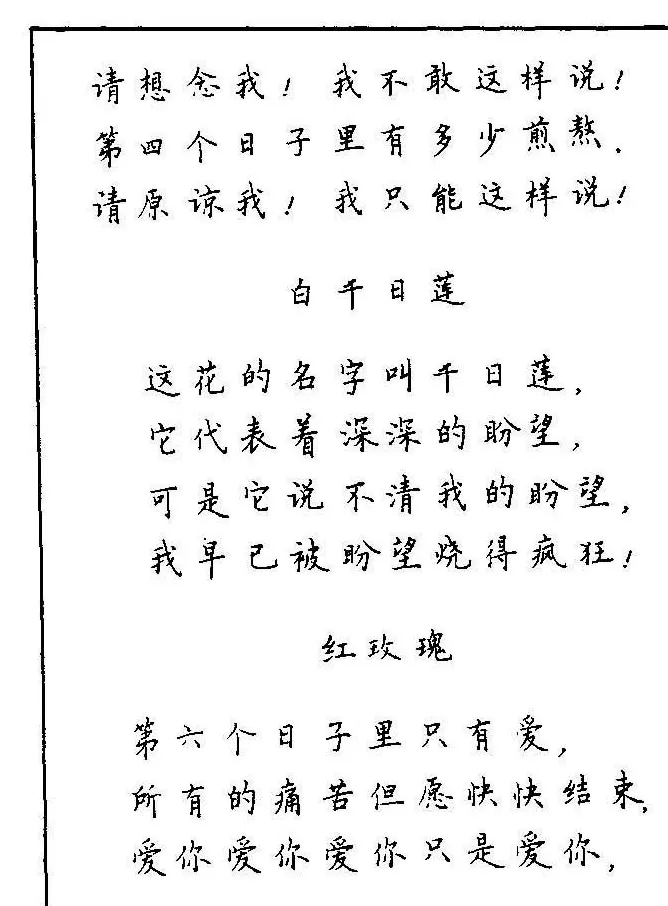 请想念我！我不敢这样说！
第四个日子里有多少煎熬.
请原谅我！我只能这样说！
白千日莲
这花的名字叫千日莲,
它代表着深深的盼望,
可是它说不清我的盼望,
我早已被盼望烧得疯狂！
红玫瑰
第六个日子里只有爱,
所有的痛苦但愿快快结束,
爱你爱你爱你只是爱你,